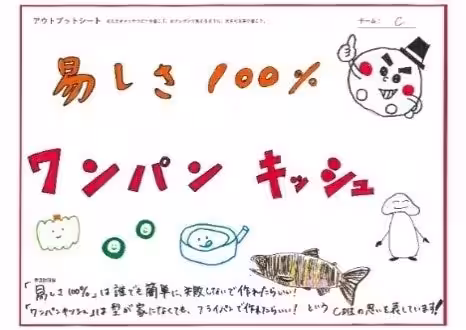 アウトプットシート
チーム: C
易しさ 100%
ワンパン キッシュ
「易しさ100%」は誰でも簡単に、失敗しないで作れたらいい!
「ワンパンキッシュ」は型が家になくても、フライパンで作れたらいい! という C班の思いを表しています!